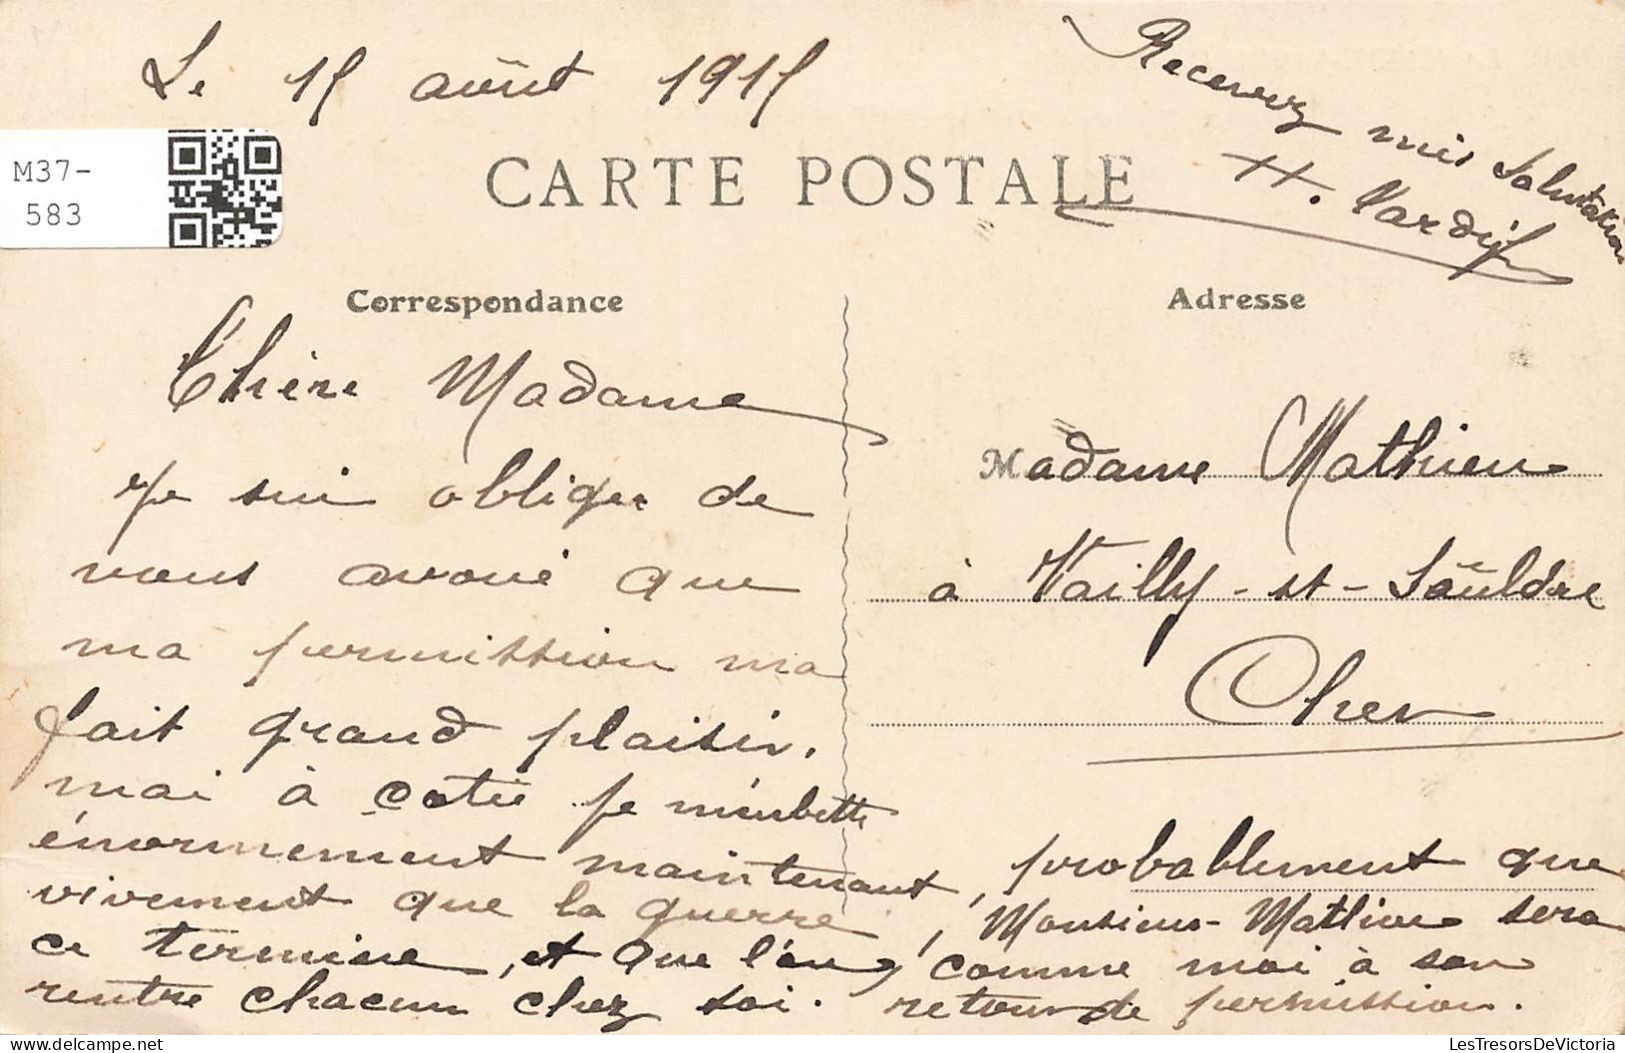 Le 15 août 1915
Recevez mes Salutations
H. Vardif
M37-
583
CARTE POSTALE
Correspondance
Adresse
Chère Madame
Je sui obliger de
vous avoué que
ma permission ma
fait grand plaisir.
mai à cotié je m'enbette
énormement maintenant,
vivement que la guerre,
ce termine, et que l'on
rentre chacun chez soi.
Madame Mathieu
à Vailly-st-Sauldre
Cher
probablement que
Monsieur Mathieu sera
comme moi à son
retour de permission.
LesTresorsDeVictoria